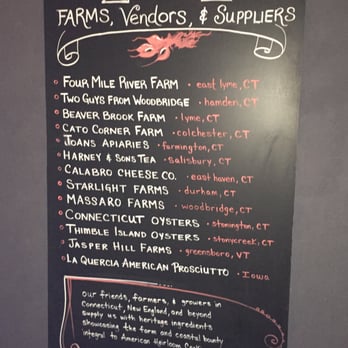 FARMS, VENDORS, & SUPPLIERS
FOUR MILE RIVER FARM • east lyme, CT
TWO GUYS FROM WOODBRIDGE • hamden, CT
BEAVER BROOK FARM • lyme, CT
CATO CORNER FARM • colchester, CT
JOANS APIARIES • farmington, CT
HARNEY & SONS TEA • Salisbury, CT
CALABRO CHEESE CO. • east haven, CT
STARLIGHT FARMS • durham, CT
MASSARO FARMS • woodbridge, CT
CONNECTICUT OYSTERS • stonington, CT
THIMBLE ISLAND OYSTERS • stonycreek, CT
JASPER HILL FARMS • greensboro, VT
LA QUERCIA AMERICAN PROSCIUTTO • Iowa
Our friends, farmers, & growers in
Connecticut, New England, and beyond
supply us with heritage ingredients
showcasing the farm and coastal bounty
integral to American Heirloom